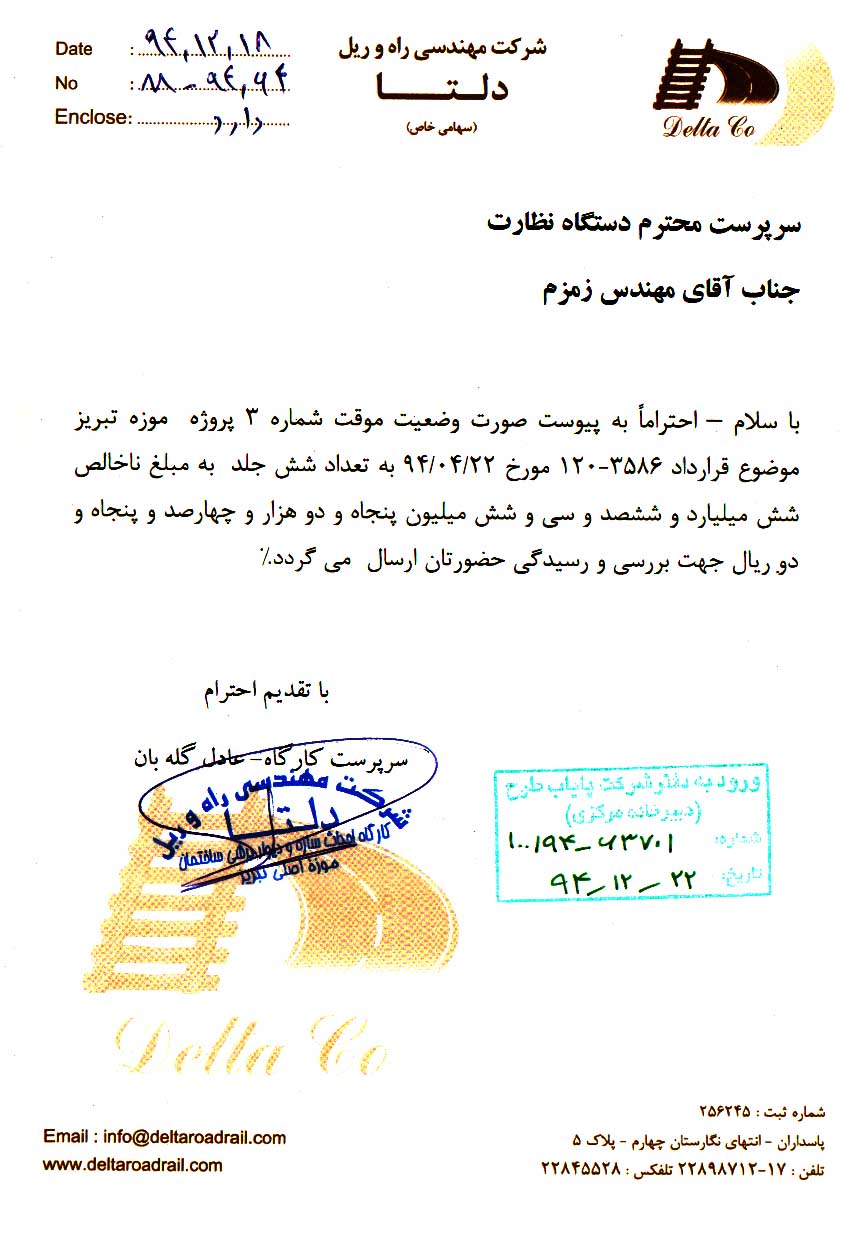 شرکت مهندسی راه و ریل
دلتا
(سهامی خاص)
Delta Co
Date : ۹۴,۱۲,۱۸
No :
Enclose: دارد
سرپرست محترم دستگاه نظارت
جناب آقای مهندس زمزم
با سلام – احتراماً به پیوست صورت وضعیت موقت شماره ۳ پروژه موزه تبریز
موضوع قرارداد ۳۵۸۶-۱۲۰ مورخ ۹۴/۰۴/۲۲ به تعداد شش جلد به مبلغ ناخالص
شش میلیارد و ششصد و سی و شش میلیون پنجاه و دو هزار و چهارصد و پنجاه و
دو ریال جهت بررسی و رسیدگی حضورتان ارسال می گردد.٪
با تقدیم احترام
سرپرست کارگاه– عادل گله بان
شرکت مهندسی راه و ریل
دلتا
کارگاه احداث سازه و دیوار برشی ساختمان
موزه اصلی تبریز
ورود به دفتر شرکت پایاب طرح
(دبیرخانه مرکزی)
شماره:
تاریخ: ۹۴-۱۲-۲۲
Delta Co
شماره ثبت : ۲۵۶۲۴۵
پاسداران - انتهای نگارستان چهارم - پلاک ۵
تلفن : ۱۷-۲۲۸۹۸۷۱۲ تلفکس : ۲۲۸۴۵۵۲۸
Email : info@deltaroadrail.com
www.deltaroadrail.com